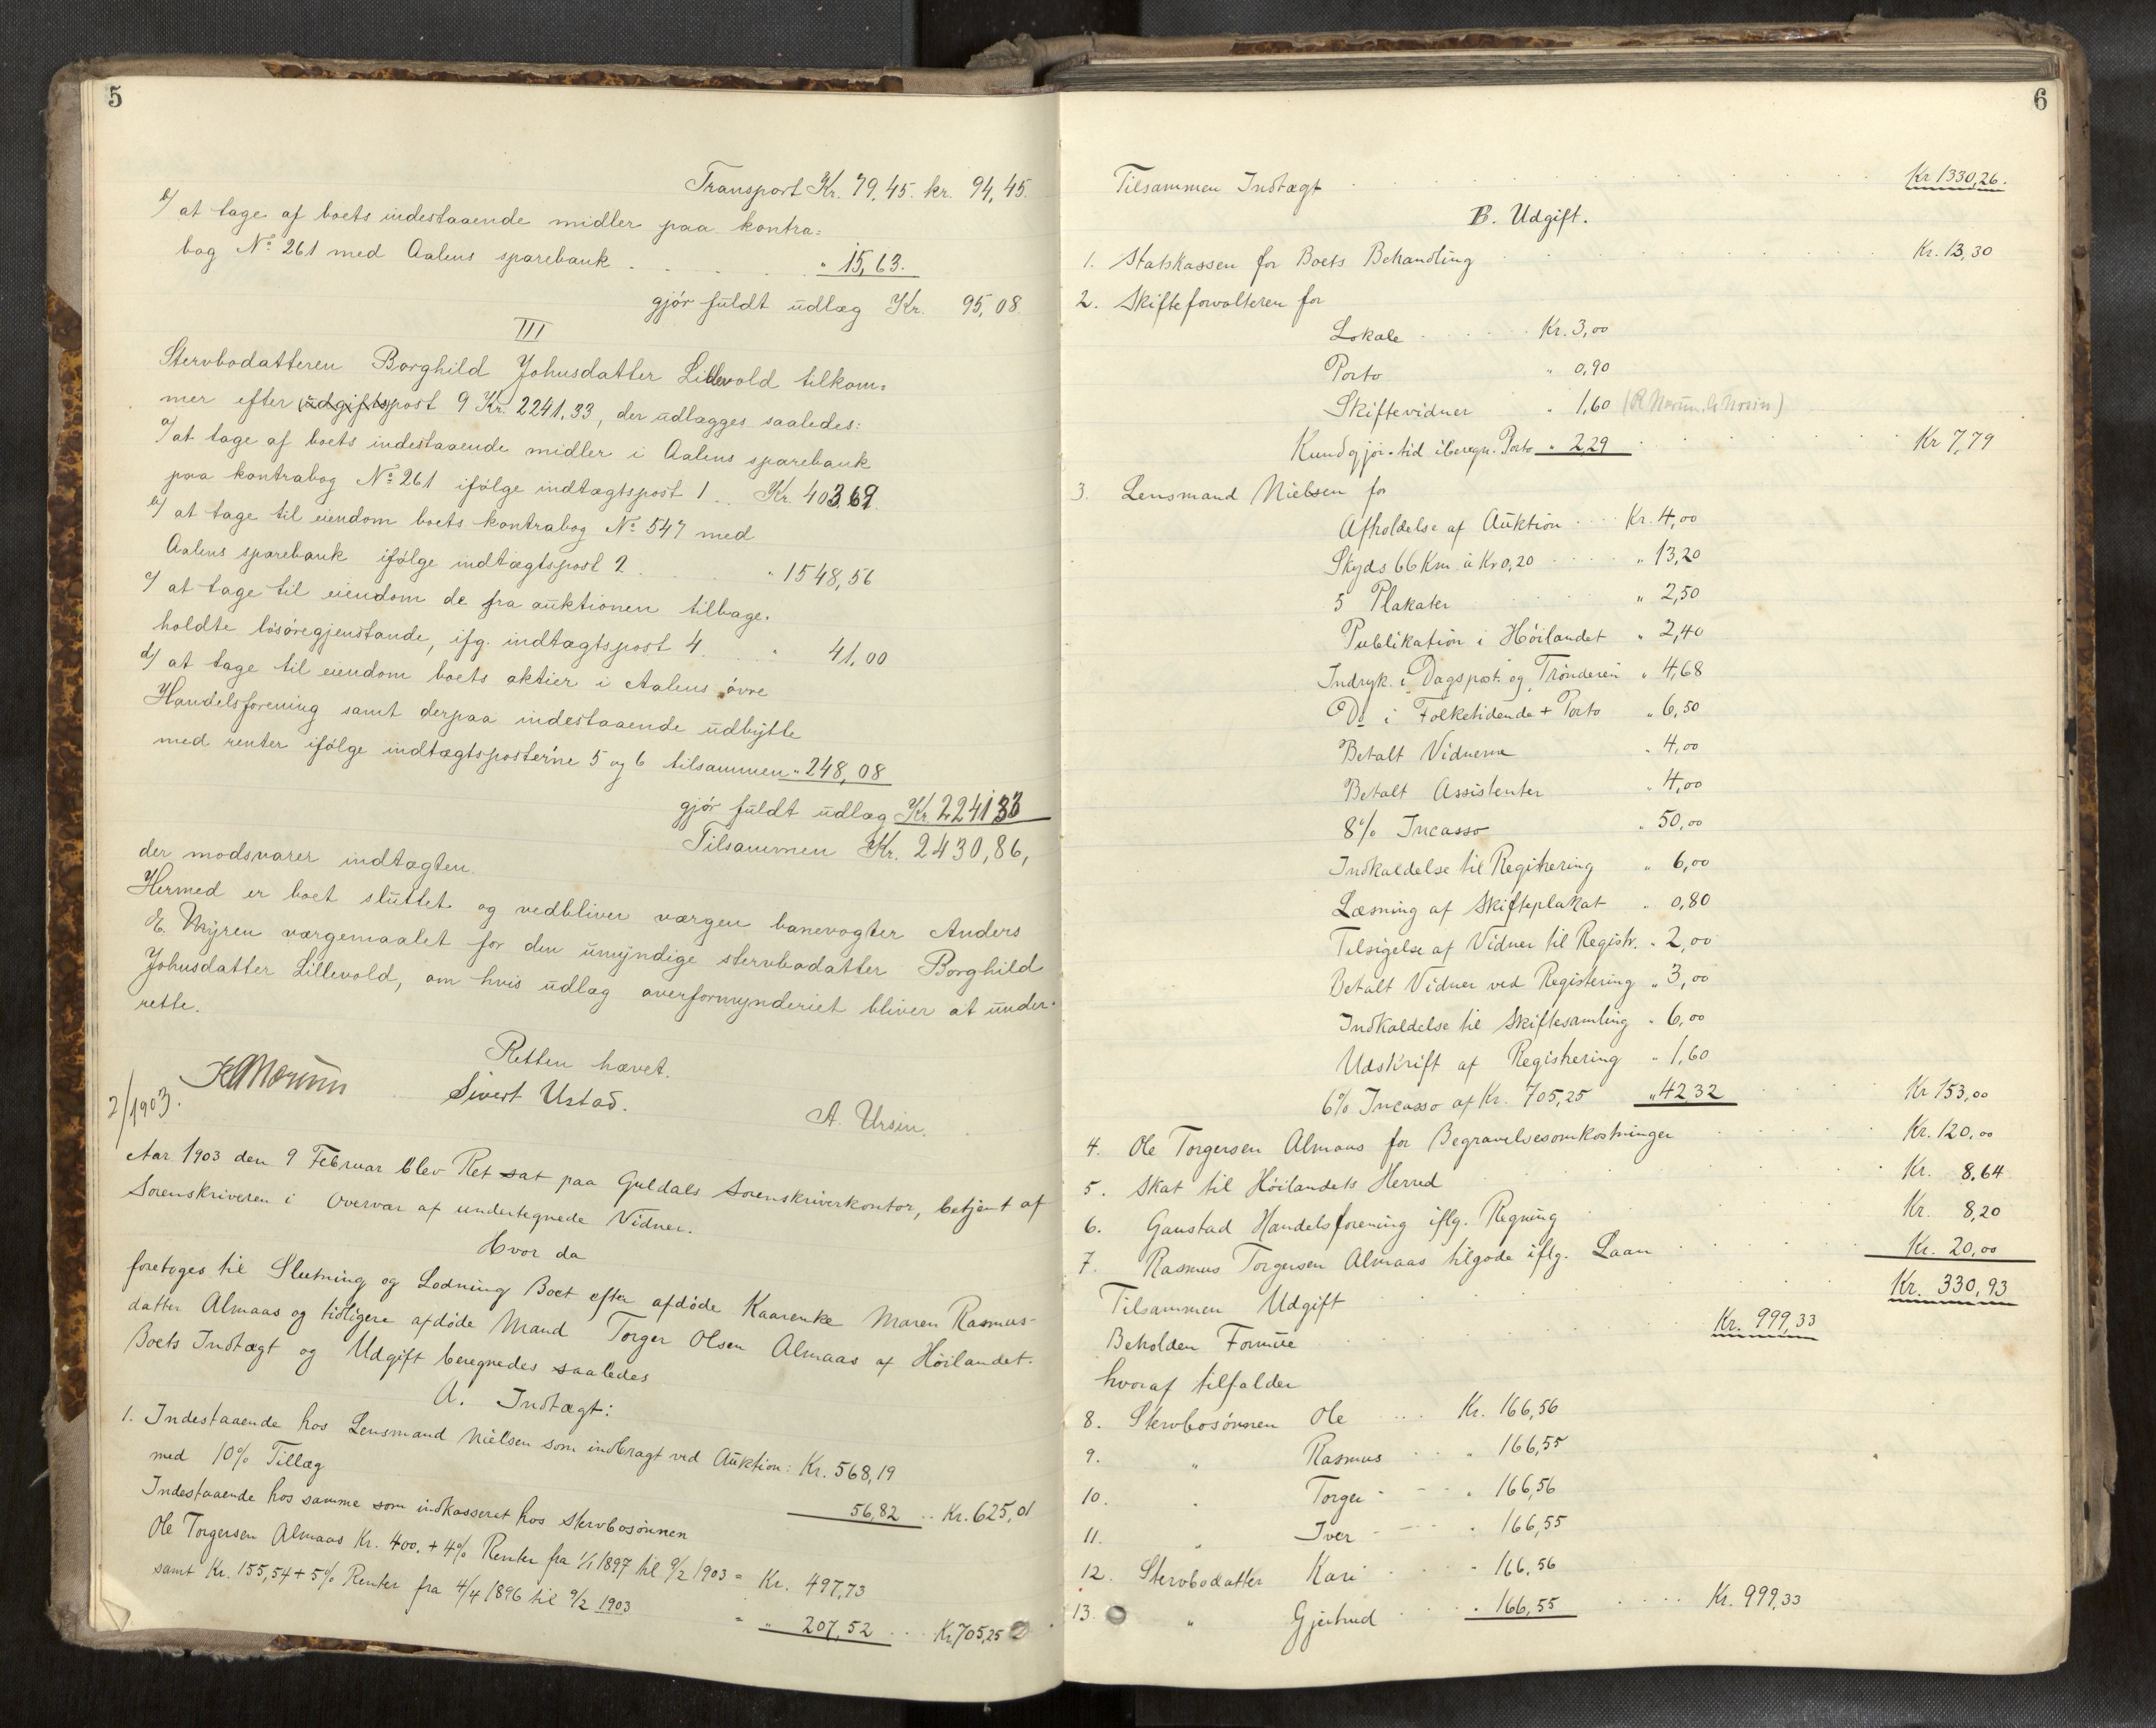 5
Transport Kr. 79,45. kr. 94,45.
b/ at tage af boets indestaaende midler paa kontra=
bog No 261 med Aalens sparebank . . . . " 15,63.
gjør fuldt udlæg Kr. 95,08
III
Stervbodatteren Borghild Johnsdatter Lillevold tilkom=
mer efter udgiftspost 9 Kr. 2241,33, der udlægges saaledes:
a/ at tage af boets indestaaende midler i Aalens sparebank
paa kontrabog No 261 ifølge indtægtspost 1 .. Kr. 403,69.
b/ at tage til eiendom boets kontrabog No 547 med
Aalens sparebank ifølge indtægtspost 2 . . " 1548,56
c/ at tage til eiendom de fra auktionen tilbage-
holdte løsøregjenstande, ifg. indtægtspost 4 . . " 41,00
d/ at tage til eiendom boets aktier i Aalens øvre
Handelsforening samt derpaa indestaaende udbytte
med renter ifølge indtægtsposterne 5 og 6 tilsammen " 248,08
gjør fuldt udlæg Kr. 2241 33
Tilsammen Kr. 2430,86,
der modsvarer indtægten.
Hermed er boet sluttet og vedbliver værgen banevogter Anders
E. Myren værgemaalet for den umyndige stervbodatter Borghild
Johnsdatter Lillevold, om hvis udlæg overformynderiet bliver at under-
rette.
Retten hævet.
Sivert Ustad.
A. Ursin.
2/1903.
Aar 1903 den 9 Februar blev Ret sat paa Guldals Sorenskriverkontor, betjent af
Sorenskriveren i Overvær af undertegnede Vidner.
Hvor da
foretoges til Slutning og Lodning Boet efter afdøde Kaarenke Maren Rasmus-
datter Almaas og tidligere afdøde Mand Torger Olsen Almaas af Höilandet.
Boets Indtægt og Udgift beregnedes saaledes
A. Indtægt:
1. Indestaaende hos Lensmand Nielsen som indbragt ved Auktion: Kr. 568,19
med 10% Tillæg 56,82 .. Kr. 625,01
Indestaaende hos samme som indkasseret hos Stervbosønnen
Ole Torgersen Almaas Kr. 400. + 4% Renter fra 1/1 1897 til 9/2 1903 = Kr. 497,73
samt Kr. 155,54 + 5% Renter fra 4/4 1896 til 9/2 1903 = " 207,52 ... Kr. 705,25
6
Tilsammen Indtægt Kr 1330,26.
B. Udgift.
1. Statskassen for Boets Behandling Kr. 13,30
2. Skifteforvalteren for
Lokale Kr. 3,00
Porto " 0,90
Skiftevidner " 1,60
Kundgjør.tid iberegn. Porto " 2,29 Kr 7,79
3. Lensmand Nielsen for
Afholdelse af Auktion Kr. 4,00
Skyds 66 Km. à Kr 0,20 " 13,20
5 Plakater " 2,50
Publikation i Höilandet " 2,40
Indryk. i Dagspost. og Trønderen " 4,68
Do i Folketidende + Porto " 6,50
Betalt Vidnerne " 4,00
Betalt Assistenter " 4,00
8% Incasso " 50,00
Indkaldelse til Registrering " 6,00
Læsning af Skifteplakat " 0,80
Tilsigelse af Vidner til Registr. " 2,00
Betalt Vidner ved Registering " 3,00
Indkaldelse til Skiftesamling " 6,00
Udskrift af Registrering " 1,60
6% Incasso af Kr. 705,25 " 42,32 Kr 153,00
4. Ole Torgersen Almaas for Begravelsesomkostninger Kr. 120,00
5. Skat til Höilandets Herred Kr. 8,64
6. Gaustad Handelsforening iflg. Regning Kr. 8,20
7. Rasmus Torgersen Almaas tilgode iflg. Laan Kr. 20,00
Tilsammen Udgift Kr. 330,93
Beholden Formue Kr. 999,33
hvoraf tilfalder
8. Stervbosønnen Ole Kr. 166,56
9. " Rasmus " 166,55
10. " Torger " 166,56
11. " Iver " 166,55
12. Stervbodatter Kari " 166,56
13. " Gjertrud " 166,55 Kr. 999,33